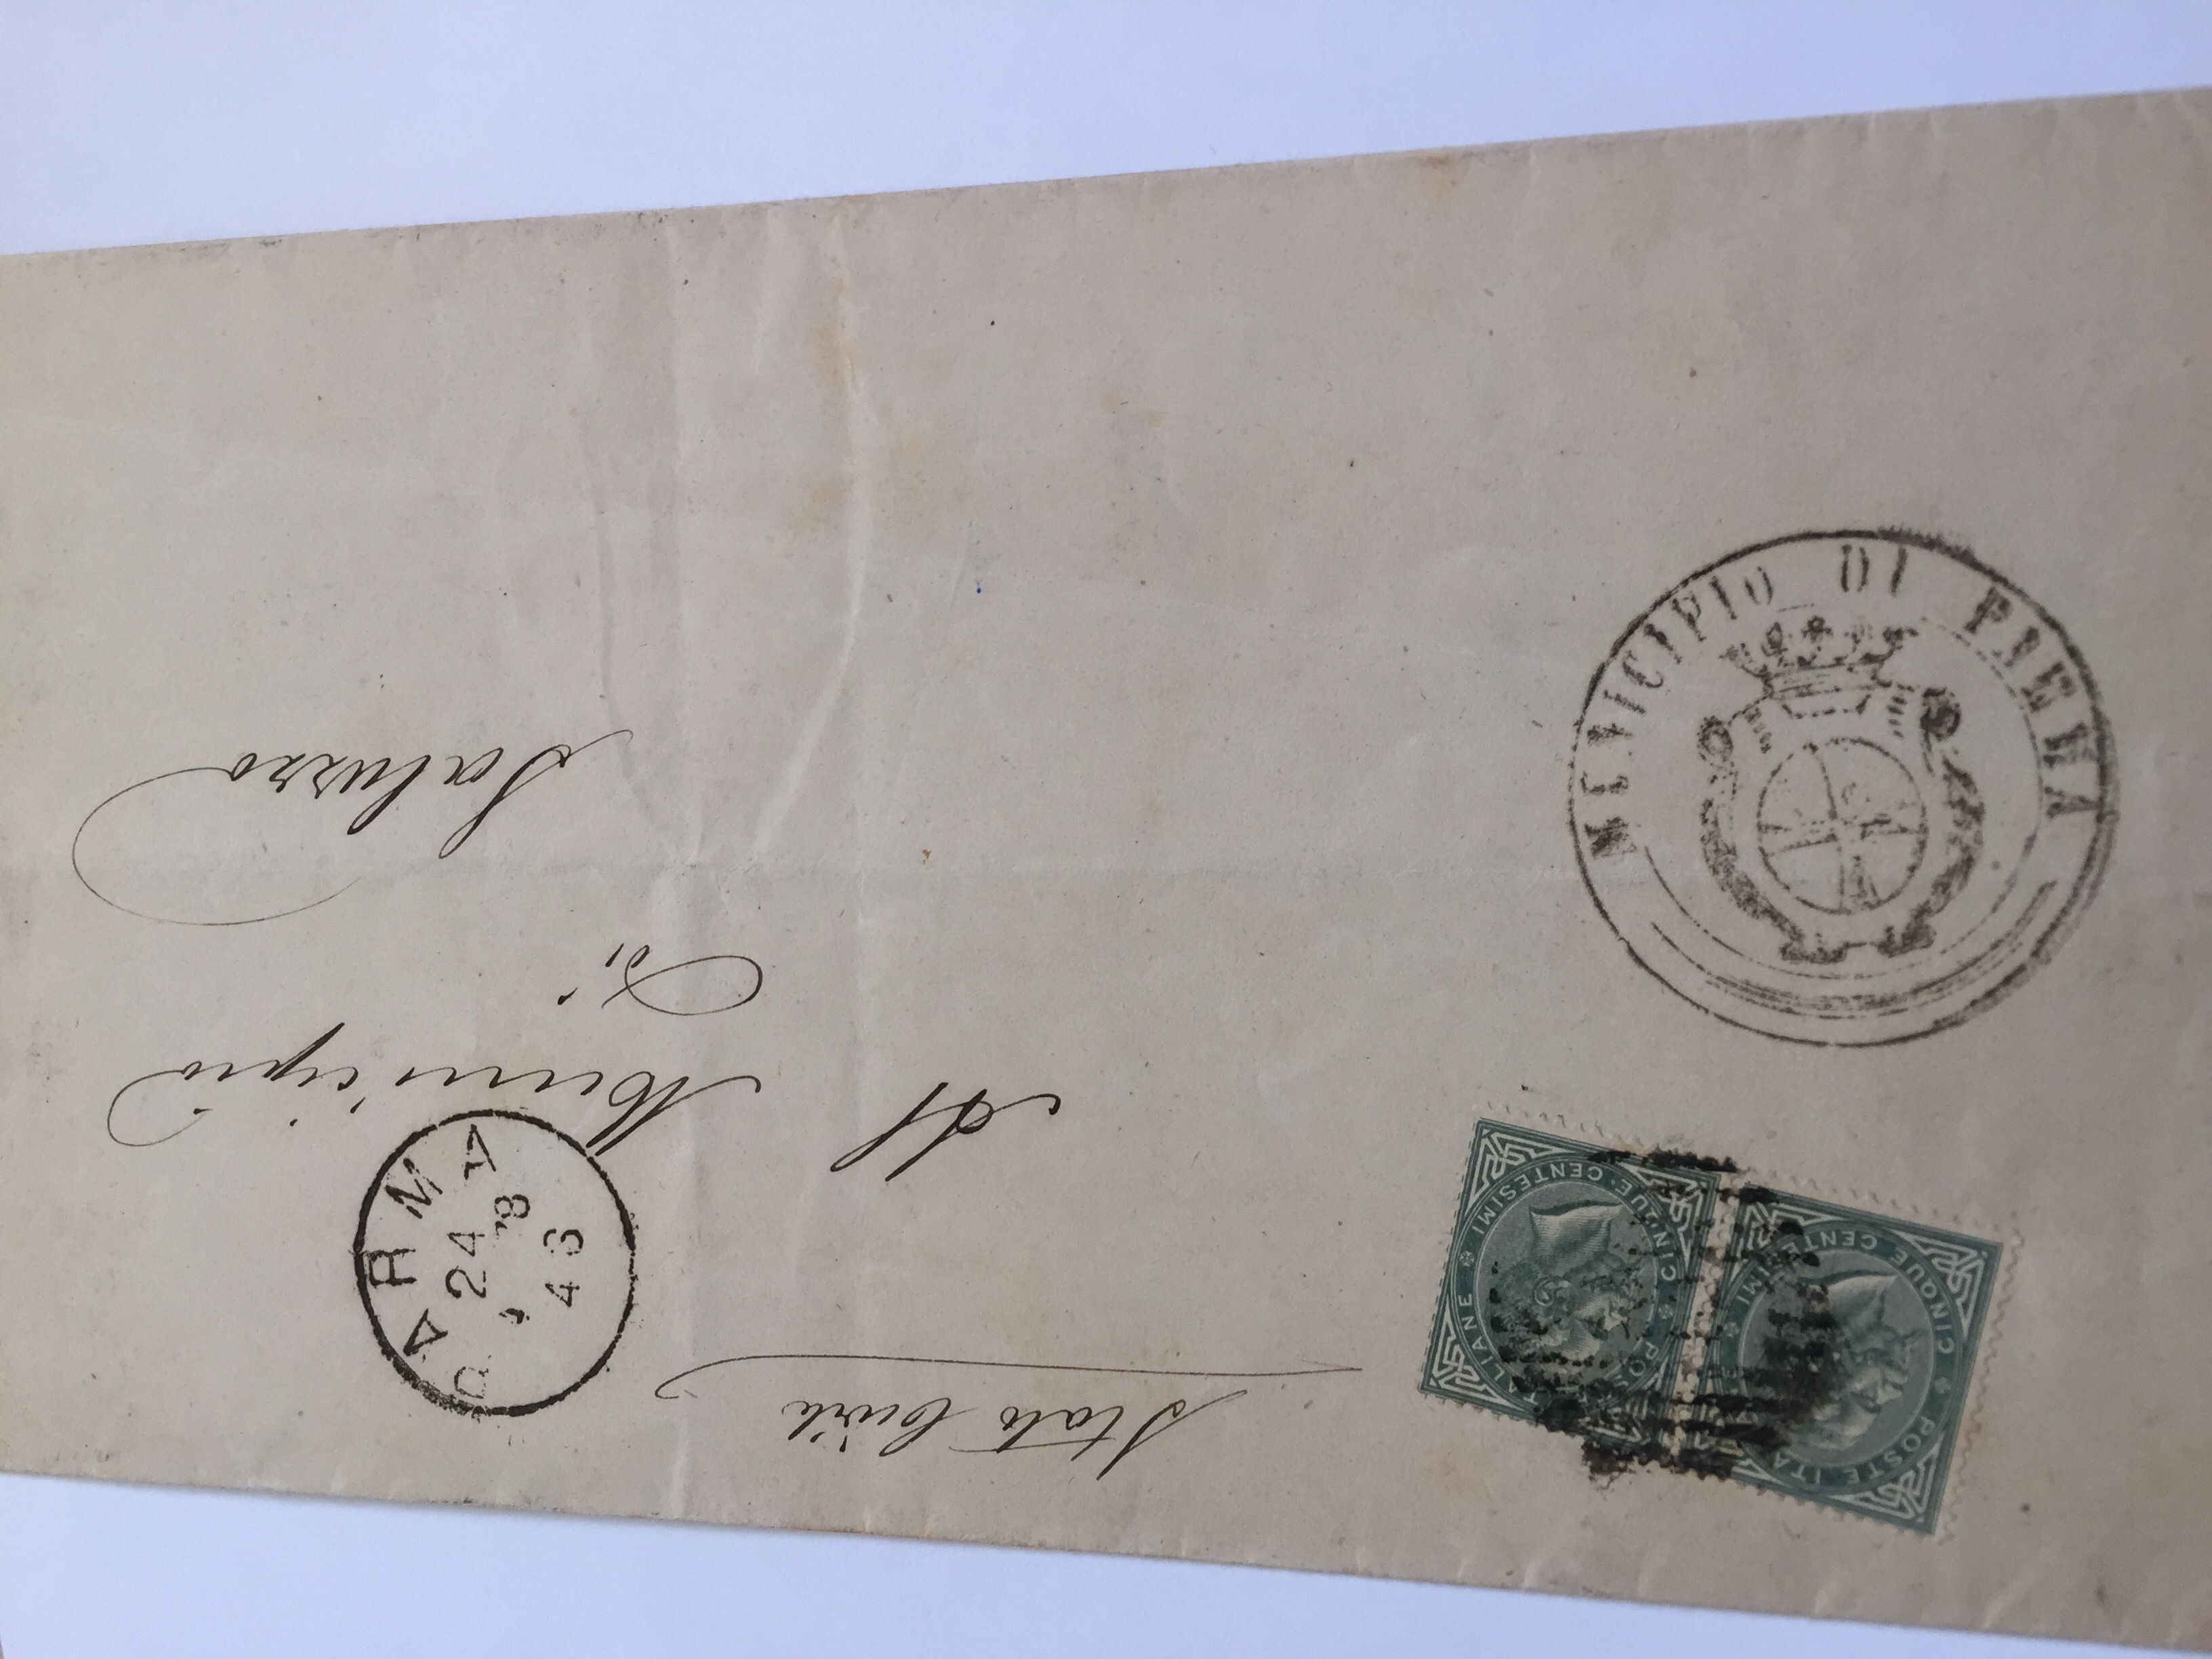 Stato Civile
Al
Municipio
di
Saluzzo
PARMA
24
8
43
MUNICIPIO DI PARMA
POSTE ITALIANE
CINQUE CENTESIMI
POSTE ITALIANE
CINQUE CENTESIMI